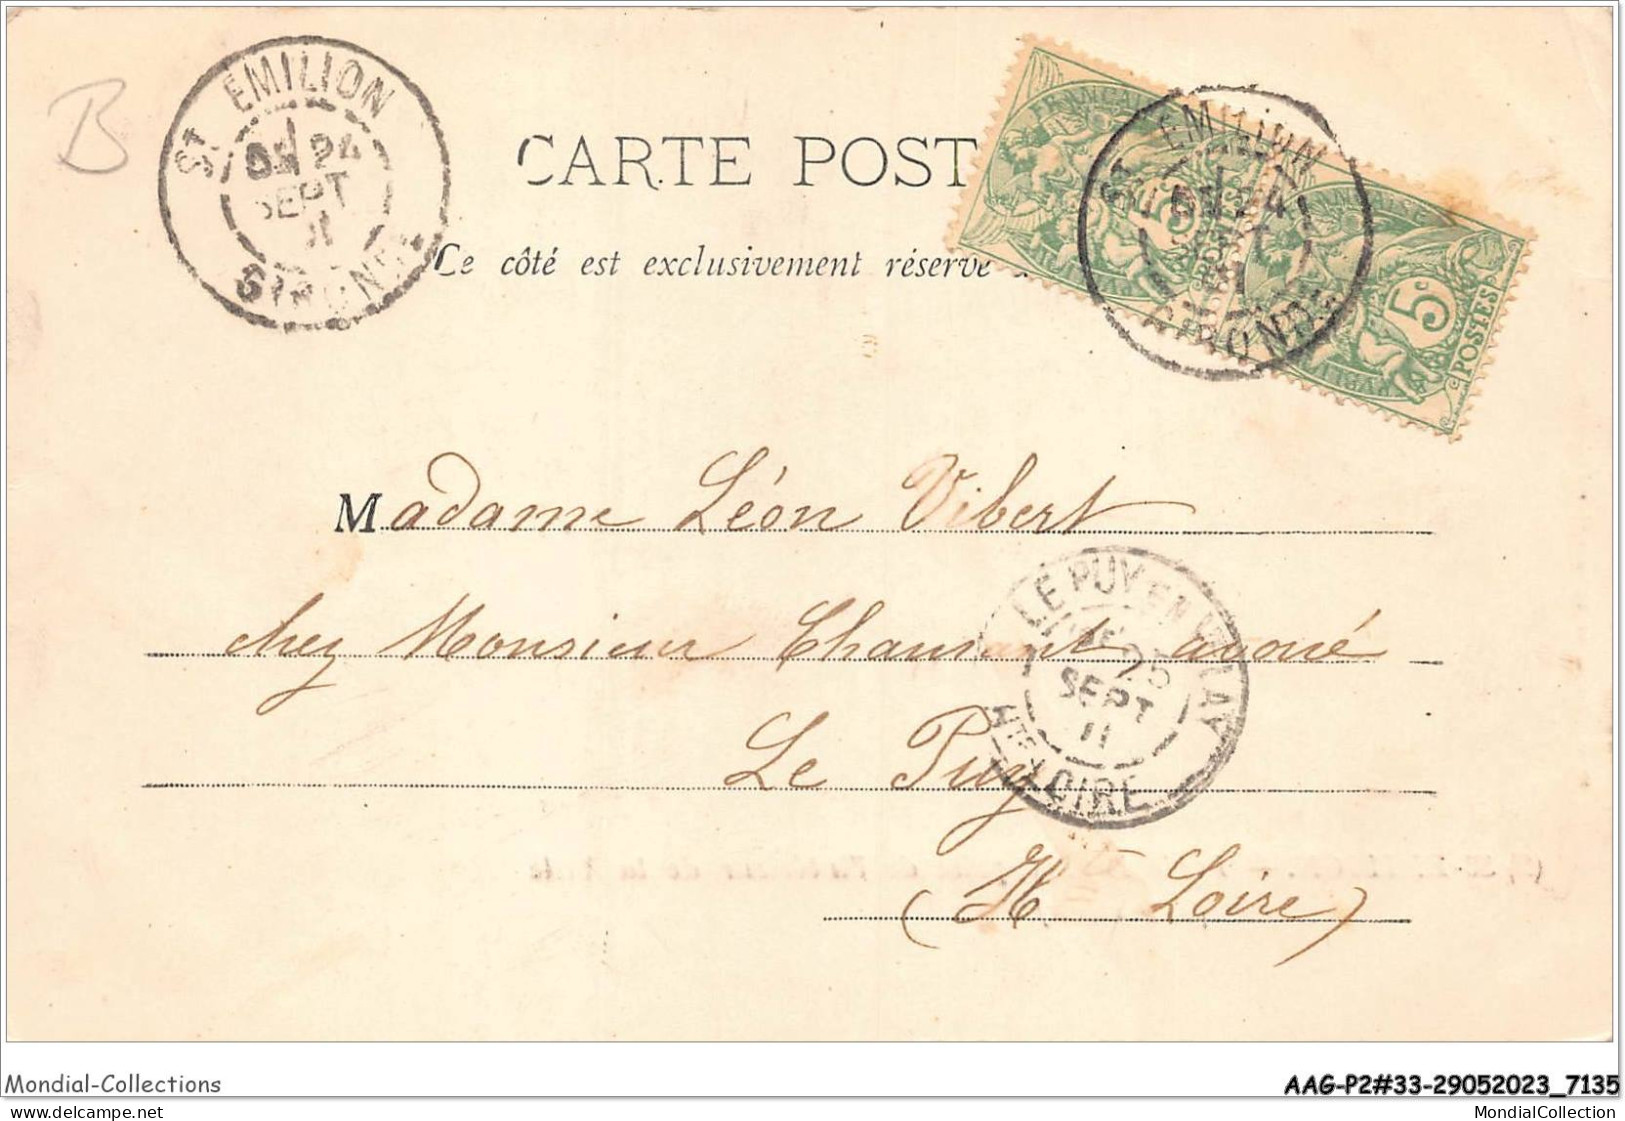 B
ST EMILION
24
SEPT
GIRONDE
CARTE POST
Ce côté est exclusivement réservé
5c
POSTES
EMILION
GIRONDE
Madame Léon Vibert
chez Monsieur avoué
Le Puy
(Hte Loire)
LE PUY EN VELAY
25
SEPT
11
HTE LOIRE
Mondial-Collections
AAG-P2#33-29052023_7135
MondialCollection